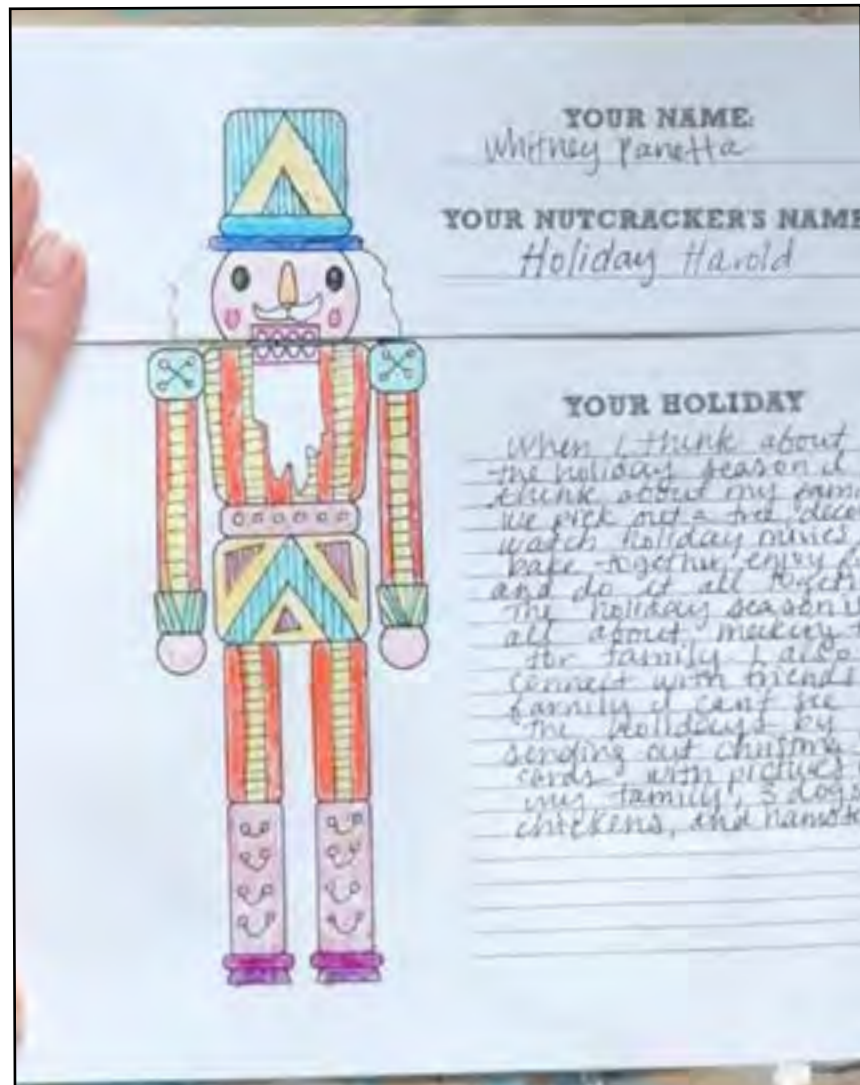 YOUR NAME:
Whitney Panetta
YOUR NUTCRACKER'S NAME
Holiday Harold
YOUR HOLIDAY
When I think about
the holiday season I
think about my
we pick out a tree,
watch holiday movies
bake together, enjoy
and do it all
The holiday season
all about
for family. I also
connect with friends
family I can't see
the holidays by
sending out
cards with pictures
my family, 3 dogs
chickens, and